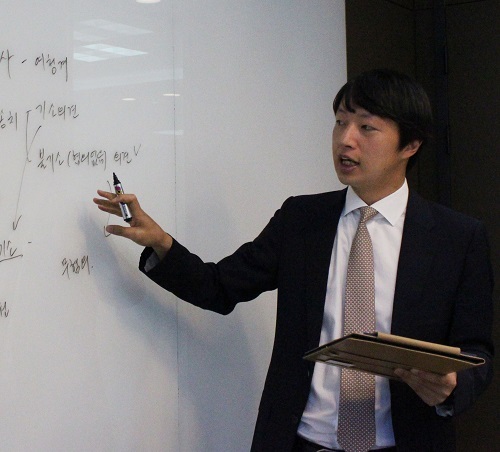 사 - 어떻게
기소의견
불기소(혐의없음) 의견 ✓
기소 -
무혐의.